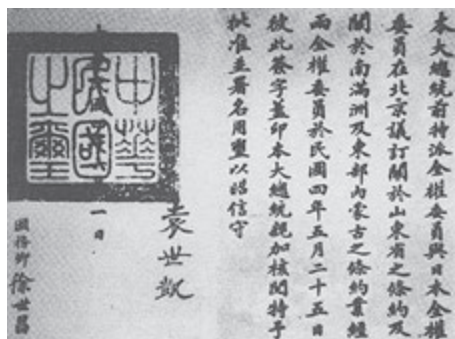 本大總統前特派全權委員與日本全權
委員在北京議訂關於山東省之條約及
關於南滿洲及東部內蒙古之條約業經
兩全權委員於民國四年五月二十五日
彼此簽字蓋印本大總統親加核閱特予
批准並署名用璽以昭信守
袁世凱
中華民國之璽
一日
國務卿徐世昌